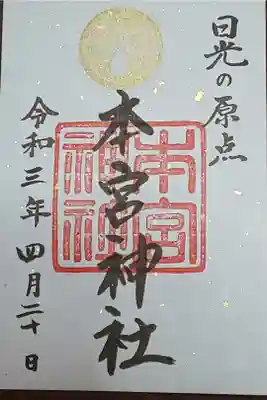 日光の原点
本宮神社
本宮神社
令和三年 四月二十日